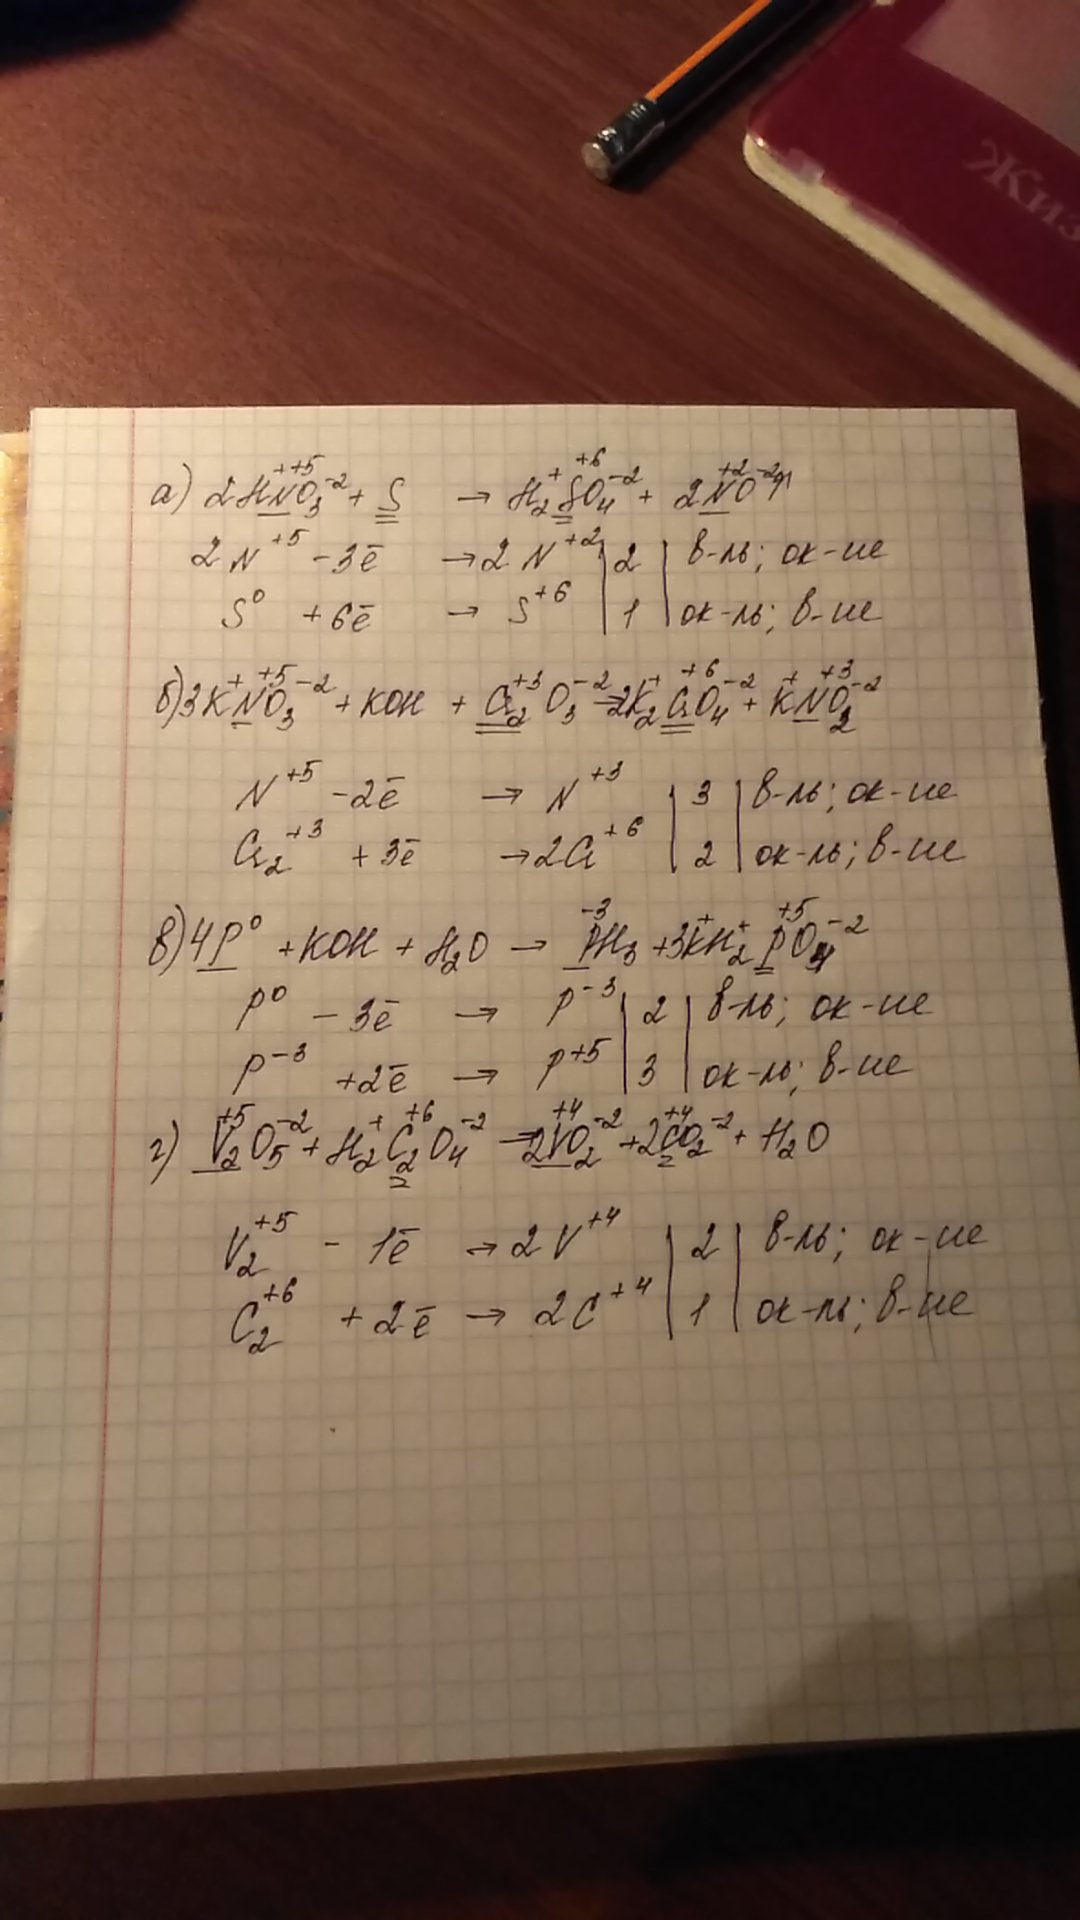 Жиз
а) 2H⁺N⁺⁵O₃⁻² + S → H₂⁺S⁺⁶O₄⁻² + 2N⁺²O⁻²↑
2N⁺⁵ - 3ē → 2N⁺² | 2 | в-ль; ок-ие
S⁰ + 6ē → S⁺⁶ | 1 | ок-ль; в-ие
б) 3K⁺N⁺⁵O₃⁻² + KOH + Cr₂⁺³O₃⁻² → 2K₂⁺Cr⁺⁶O₄⁻² + K⁺N⁺³O₂⁻²
N⁺⁵ - 2ē → N⁺³ | 3 | в-ль; ок-ие
Cr₂⁺³ + 3ē → 2Cr⁺⁶ | 2 | ок-ль; в-ие
в) 4P⁰ + KOH + H₂O → P⁻³H₃ + 3K⁺H₂⁺P⁺⁵O₄⁻²
P⁰ - 3ē → P⁻³ | 2 | в-ль; ок-ие
P⁻³ + 2ē → P⁺⁵ | 3 | ок-ль; в-ие
г) V₂⁺⁵O₅⁻² + H₂⁺C₂⁺⁶O₄⁻² → 2V⁺⁴O₂⁻² + 2C⁺⁴O₂⁻² + H₂O
V₂⁺⁵ - 1ē → 2V⁺⁴ | 2 | в-ль; ок-ие
C₂⁺⁶ + 2ē → 2C⁺⁴ | 1 | ок-ль; в-ие